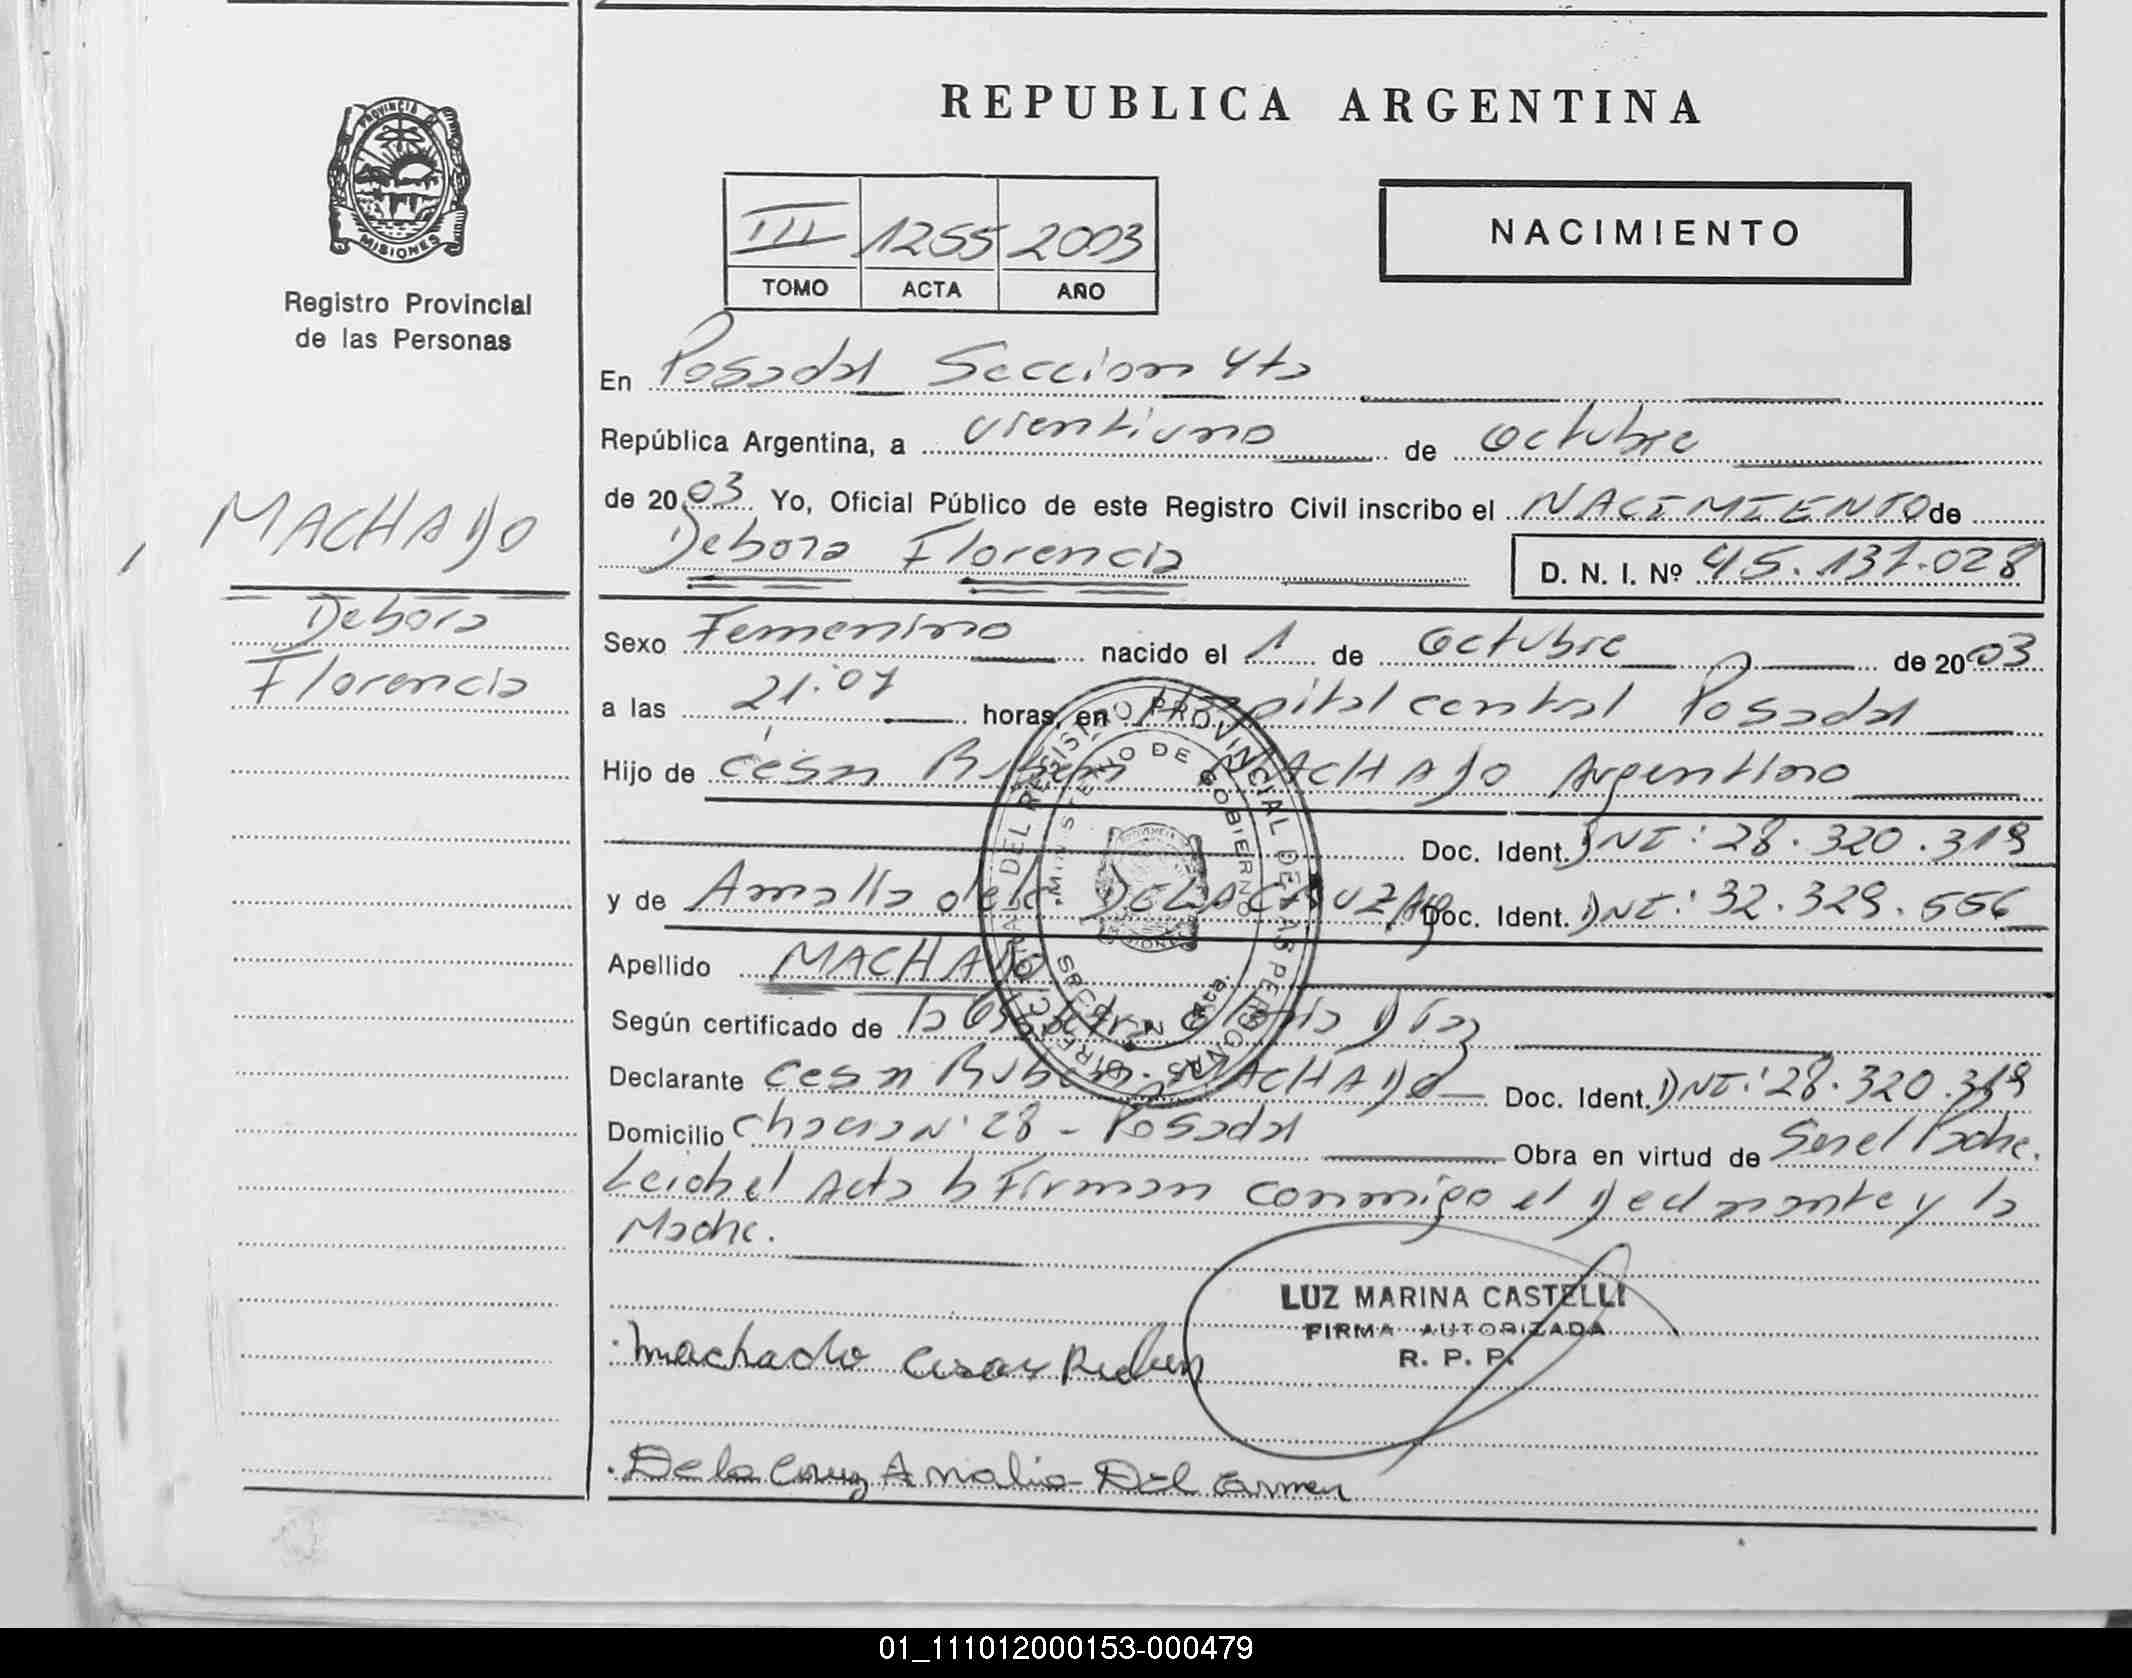 REPUBLICA ARGENTINA
PROVINCIA DE MISIONES
Registro Provincial
de las Personas
III 1255 2003
TOMO ACTA AÑO
NACIMIENTO
MACHADO
Debora
Florencia
En Posadas Seccion 4ta
República Argentina, a vientiuno de Octubre
de 2003 Yo, Oficial Público de este Registro Civil inscribo el NACIMIENTO de
Debora Florencia D. N. I. Nº 45.137.028
Sexo Femenino nacido el 1 de Octubre de 2003
a las 21:07 horas, en Hospital central Posadas
Hijo de César Ruben MACHADO Argentino
Doc. Ident. DNI: 28.320.319
y de Amalia del DE LA CRUZ Arg Doc. Ident. DNI: 32.329.556
Apellido MACHADO
Según certificado de la Obstetra Díaz
Declarante Cesar Ruben MACHADO Doc. Ident. DNI: 28.320.319
Domicilio Chacra Nº 28 - Posadas Obra en virtud de Ser el Padre.
Leida el Acta la Firman conmigo el Declarante y la
Madre.
DIRECC. GRAL. DEL REGISTRO PROVINCIAL DE LAS PERSONAS
MINISTERIO DE GOBIERNO
SECCION 4ta.
LUZ MARINA CASTELLI
FIRMA AUTORIZADA
R. P. P.
Machado Cesar Ruben
De la Cruz Amalia Del Carmen
01_111012000153-000479